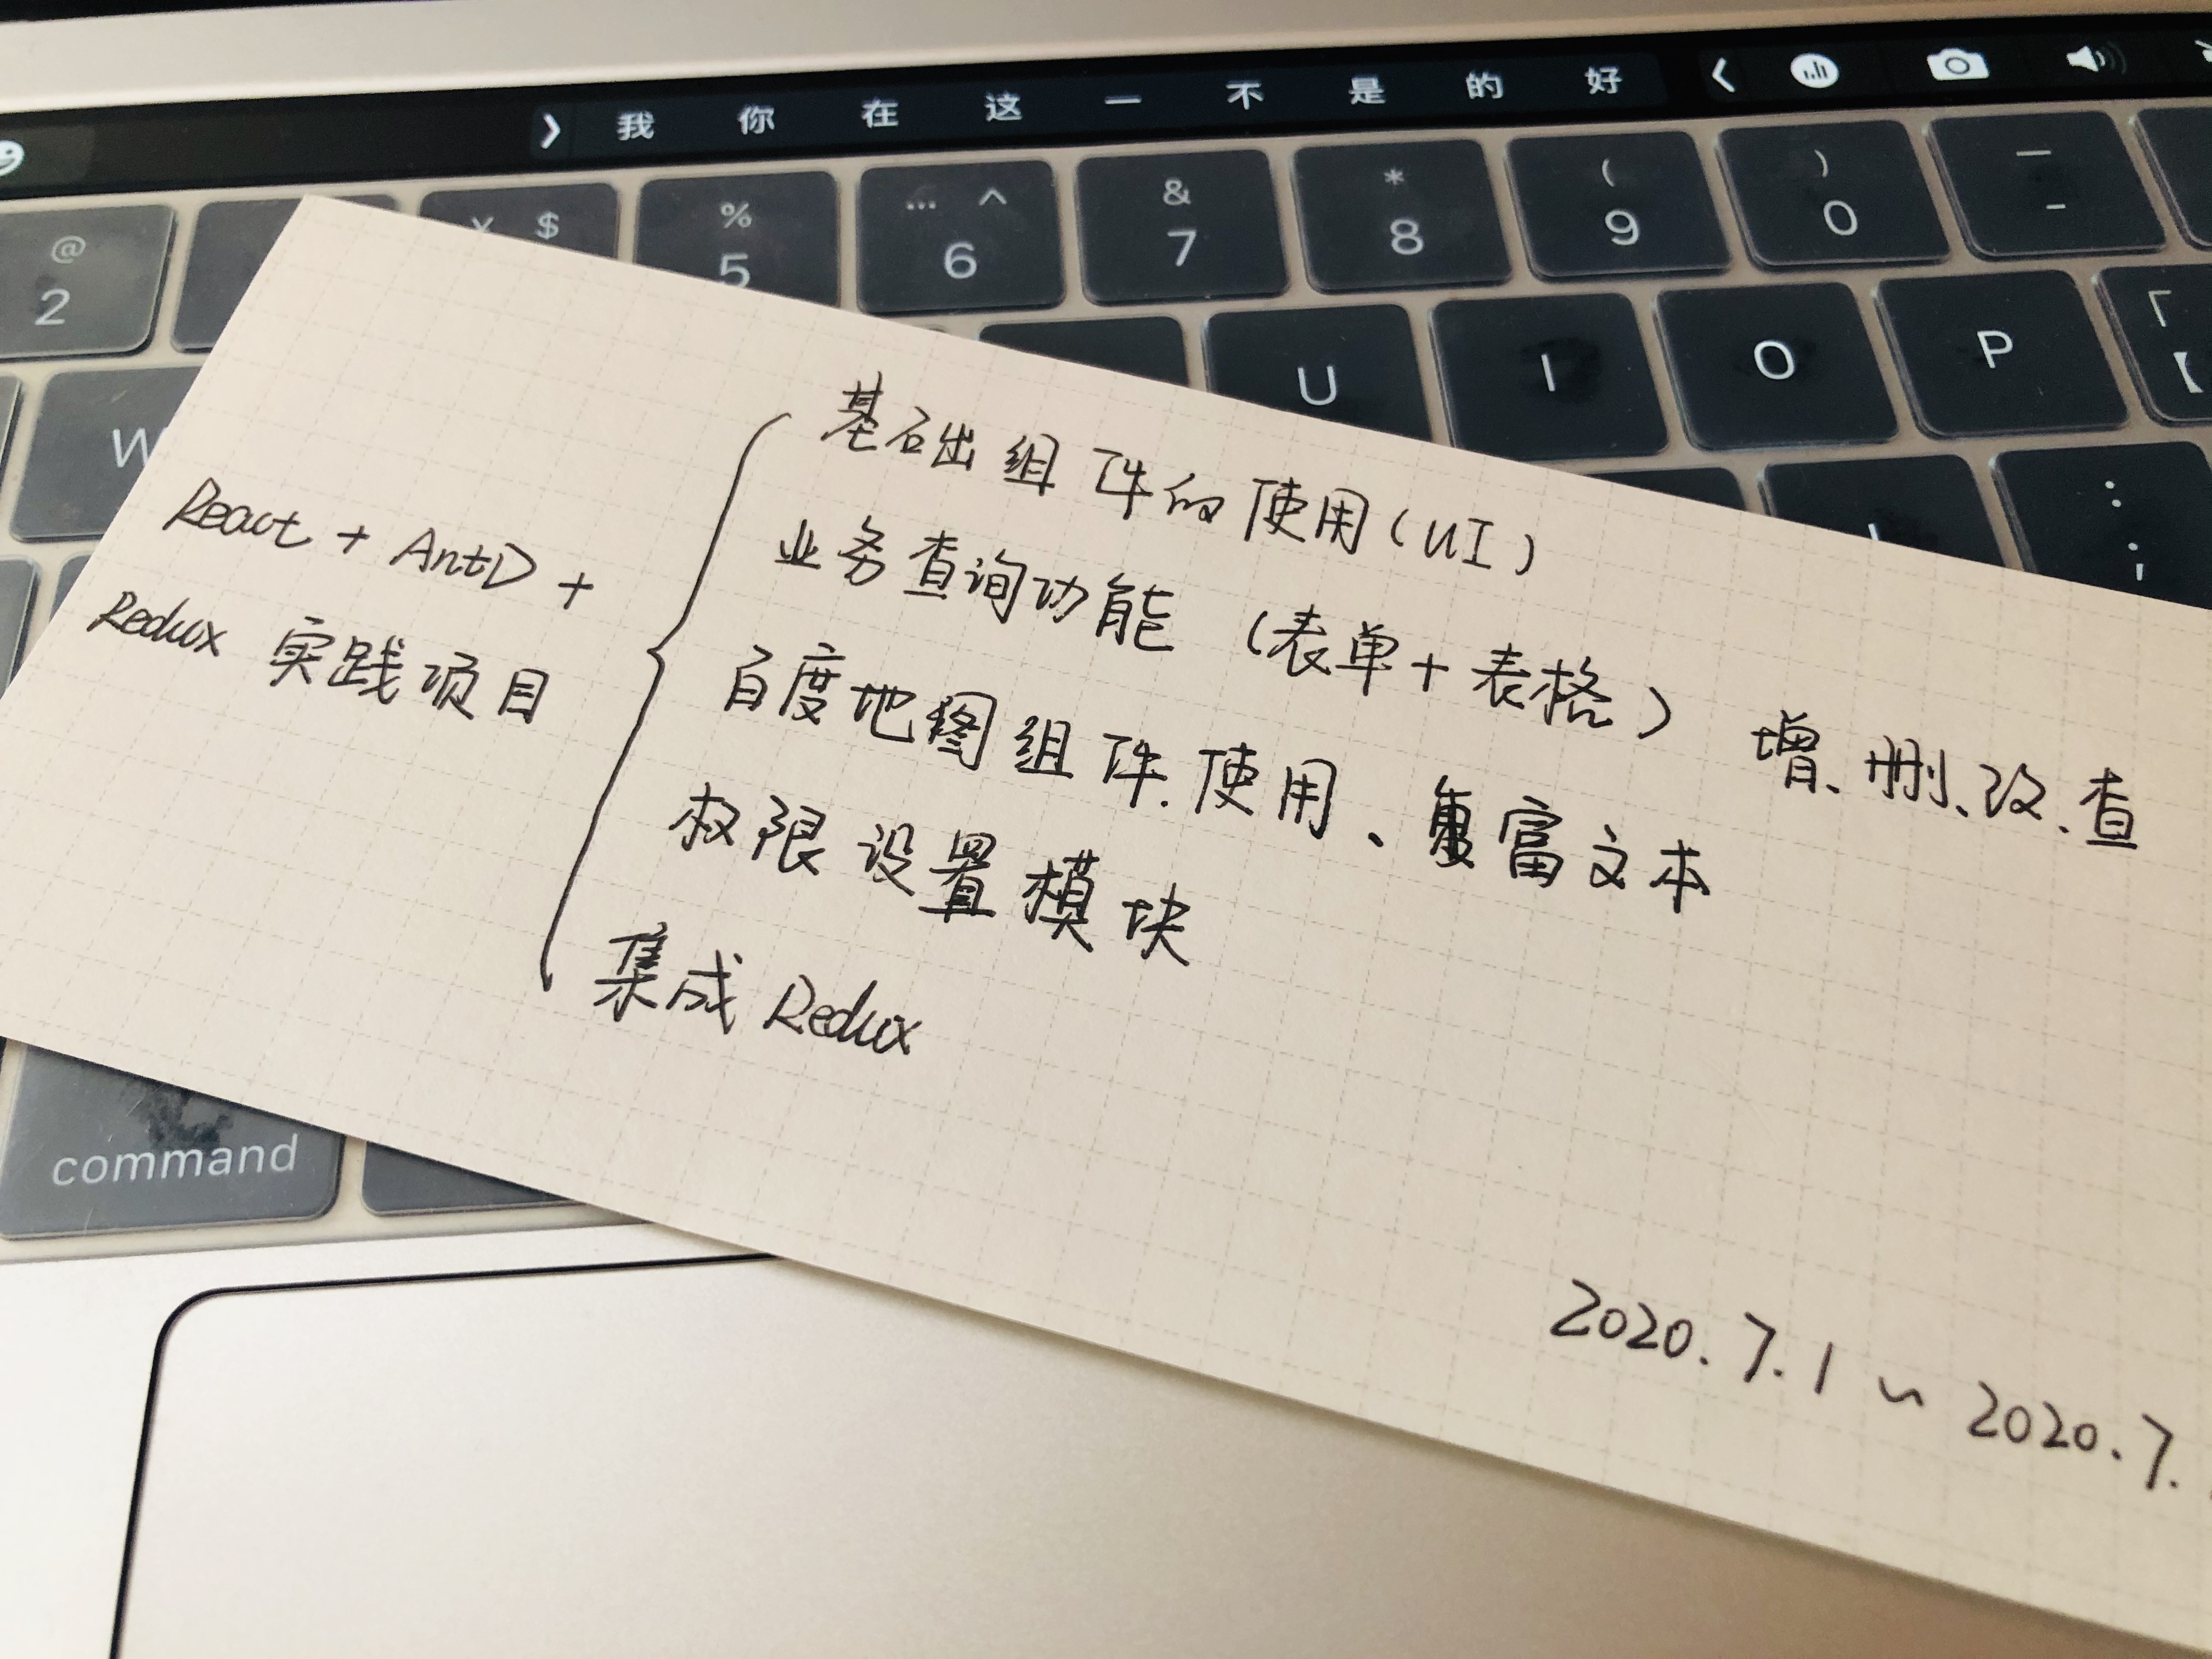 我 你 在 这 一 不 是 的 好
@ ¥ $ % … ^ & * ( ) — 
2 5 6 7 8 9 0 -
W U I O P 「
【
: 
;
L
React + AntD +
Redux 实践项目
基础组件的使用(UI)
业务查询功能 (表单+表格) 增、删、改、查
百度地图组件、使用、富文本
权限设置模块
集成 Redux
command
2020.7.1 ~ 2020.7.